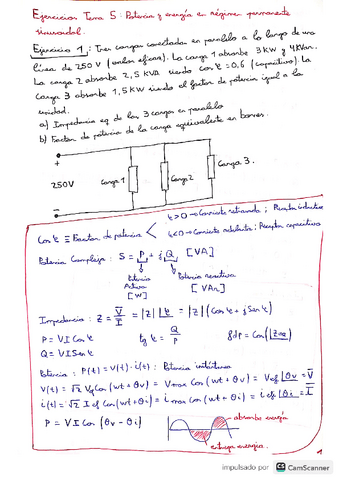 Ejercicios Tema 5: Potencia y energía en régimen permanente
sinusoidal.
Ejercicio 1: Tres cargas conectadas en paralelo a lo largo de una
línea de 250 V (valor eficaz). La carga 1 absorbe 3 KW y 4 KVAr.
La carga 2 absorbe 2,5 KVA siendo cos φ = 0,6 (capacitivo). La
carga 3 absorbe 1,5 KW siendo el factor de potencia igual a la
unidad.
a) Impedancia eq de las 3 cargas en paralelo
b) Factor de potencia de la carga equivalente en barras.
+
250V
Carga 1
Carga 2
Carga 3.
-
Cos φ ≡ Factor de potencia
φ > 0 → Corriente retrasada; Receptor inductivo
φ < 0 → Corriente adelantada; Receptor capacitivo
Potencia Compleja: S = P + jQ [VA]
Potencia Activa [W]
Potencia reactiva [VAr]
Impedancia: Z = V/I = |Z| ∠φ = |Z| (Cos φ + j Sen φ)
P = V I Cos φ
tg φ = Q/P
fdp = Cos(∠Zeq)
Q = V I Sen φ
Potencia: P(t) = V(t) · i(t): Potencia instantánea
V(t) = √2 Vef Cos (wt + θv) = Vmax Cos (wt + θv) = Vef ∠θv = V
i(t) = √2 I ef Cos (wt + θi) = i max Cos (wt + θi) = i ef ∠θi = I
P = V I Cos (θv - θi)
absorbe energía
entrega energía.
1
impulsado por CS CamScanner